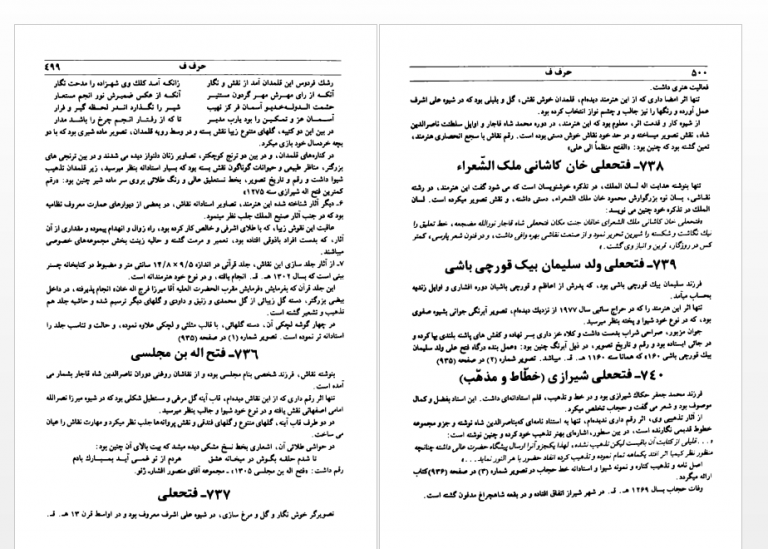 حرف ف
۴۹۹
رشک فردوس این قلمدان آمد از نقش و نگار
زانکه آمد کلک وی شهزاده را مدحت نگار
آنکه از رای مهرش مهر گردون مستنیر
آنکه از عکس ضمیرش نور انجم مستعار
حشمت الدوله خدیو آسمان فر کز نهیب
شیر را نگذارد اندر لحظه گیر و فرار
آسمان عز و تمکین را بود یارب مدیر
تا که از رفتار انجم چرخ را باشد مدار
در بین این دو کتیبه، گلهای متنوع زیبا نقش بسته و در وسط رویه قلمدان، تصویر ماده شیری بود که با دو
بچه خردسال خود بازی میکرد.
در کناره‌های قلمدان، و در بین دو ترنج کوچکتر، تصاویر زنان دلنواز دیده می شدند و در بین ترنجی های
بزرگتر، مناظر طبیعی و حیوانات گوناگون نقش بسته بود که بسیار استادانه بنظر میرسید، زیر قلمدان تذهیب
شیوا داشت و رقم و تاریخ تصویر، بخط نستعلیق عالی و رنگ طلائی بروی سر ماده شیر چنین بود: «رقم
کمترین فتح اله شیرازی سنه ۱۲۷۵»
۶ـ دیگر آثار شناخته شده این هنرمند، تصاویر استادانه نقاش، در بعضی از دیوارهای عمارت معروف نظامیه
بود که در جنب آثار صنیع الملک جلب نظر مینمود.
عاقبت این نقوش زیبا، که با طلای اشرفی و خالص کار کرده بود، راه زوال و انهدام پیموده و مقداری از آن
آثار، که بدست افراد باذوقی افتاده بود، تعمیر و مرمت گشته و حالیه زینت بخش مجموعه‌های خصوصی
میباشند.
۷ـ از آثار جلد سازی این نقاش، جلد قرآنی در اندازه ۹/۵ × ۱۴/۸ سانتی متر و مضبوط در کتابخانه چستر
بیتی است که بسال ۱۳۰۲ هـ. ق. انجام یافته، و در نوع خود هنرمندانه است.
این جلد قرآن که بفرمایش «فرمایش مقرب الحضرت العلیه آقا میرزا فرج اله خان» انجام پذیرفته، در داخل
بیضی بزرگتر، دسته گل زیبائی از گل محمدی و زنبق و داودی و گلهای دیگر ترسیم شده و حاشیه جلد هم
تذهیب و تشعیر گشته است.
در چهار گوشه لچکی آن، دسته گلهائی، با قالب مثلثی و لچکی علاوه نموده، و حالت و تناسب جلد را
استادانه تر نموده است. تصویر شماره (۱) در صفحه (۹۳۵)
۷۳۶- فتح اله بن مجلسی
بنوشته نقاش، فرزند شخصی بنام مجلسی بوده، و از نقاشان روغنی دوران ناصرالدین شاه قاجار بشمار می
آمده است.
تنها اثر رقم داری که از این نقاش دیده‌ام، قاب آینه گل مرغی و مستطیل شکلی بود که در شیوه میرزا نصرالله
امامی اصفهانی نقش یافته و در نوع خود شیوا و جالب بنظر میرسید.
در دو طرف قاب آینه، گلهای متنوع و گلهای فندقی و نقش پروانه‌ها جلب نظر میکرد و مهارت نقاش را عیان
می ساخت.
در حواشی طلائی آن، اشعاری بخط نسخ مشکی دیده میشد که بیت بالای آن چنین بود:
تا شدم حلقه بگوش در میخانه عشق
هردم از تو غمی آید بمبارک بادم
رقم داشت: «فتح اله بن مجلسی ۱۳۰۵» ـ مجموعه آقای منصور افشار، ژنو.
۷۳۷- فتحعلی
تصویرگر خوش نگار و گل و مرغ سازی، در شیوه علی اشرف معروف بود و در اواسط قرن ۱۳ هـ. ق.
۵۰۰
حرف ف
فعالیت هنری داشت.
تنها اثر امضا داری که از این هنرمند دیده‌ام، قلمدان خوش نقش، گل و بلبلی بود که در شیوه علی اشرف
عمل آورده و رنگها را نیز جالب و چشم نواز انتخاب کرده بود.
از شیوه کار و قدمت اثر، معلوم بود که این هنرمند، در دوره محمد شاه قاجار و اوایل سلطنت ناصرالدین
شاه، نقش تصویر میساخته و در حد خود نقاش خوش دستی بوده است. رقم نقاش با سجع انحصاری هنرمند،
تعین گشته بود که چنین بود: «الفتح منظماً الی علی»
۷۳۸- فتحعلی خان کاشانی ملک الشّعراء
تنها بنوشته هدایت اله لسان الملک، در تذکره خوشنویسان است که می شود گفت این هنرمند، در رشته
نقاشی، بسان نوه بزرگوارش محمود خان ملک الشعراء، دستی داشته، و نقش تصویر میکرده است. لسان
الملک در تذکره خود چنین می نویسد:
«فتحعلی خان کاشانی ملک الشعرای خاقان جنت مکان فتحعلی شاه قاجار نورالله مضجعه، خط تعلیق را
نیک نگاشت و شکسته را شیرین تحریر نمود و از صنعت نقاشی بهره وافی داشت، و در فنون شعر پارسی، کمتر
کس در روزگار، قرین و انباز وی گشت.»
۷۳۹- فتحعلی ولد سلیمان بیک قورچی باشی
فرزند سلیمان بیک قورچی باشی بود، که پدرش از اعاظم و قورچی باشیان دوره افشاری و اوایل زندیه
بحساب میآمد.
تنها اثر این هنرمند را که در حراج ساتبی سال ۱۹۷۷ از نزدیک دیده‌ام، تصویر آبرنگی جوانی بشیوه صفوی
بود، که در نوع خود شیوا و پخته بنظر میرسید.
جوان مزبور، صراحی شراب بدست داشت و کلاه خز داری بسر نهاده و کفش های پاشنه بلندی بپا کرده و
در جائی ایستاده بود و رقم و تاریخ تصویر، در ذیل آبرنگ چنین بود: «عمل بنده درگاه فتح علی ولد سلیمان
بیک قورچی باشی ۱۱۶۰» که همانا سنه ۱۱۶۰ هـ. ق. میباشد. تصویر شماره (۲) در صفحه (۹۳۵)
۷۴۰- فتحعلی شیرازی (خطّاط و مذهّب)
فرزند محمد جعفر حکاک شیرازی بود و در خط و تذهیب، قلم استادانه‌ای داشت. این استاد بفضل و کمال
موصوف بود و شعر می گفت و حجاب تخلص میکرد.
از آثار تذهیبی وی، اثر رقم داری ندیده‌ام، تنها به استناد نامه‌ای که بناصرالدین شاه نوشته و جزو مجموعه
خطوط قدیمی نگارنده است، در بین سطور، اشاره‌ای بهنر تذهیب خود کرده و چنین نوشته است:
«... قلیلی از کتابت آن باقیست لیکن تذهیب نشده، لهذا یکجزو آنرا ارسال پیشگاه حضرت عالی داشته چنانچه
منظور نظر کیمیا اثر افتد یکماهه تمام نموده و تذهیب کرده انفاد حضور با هر النور نماید...»
اصل نامه و تذهیب کناره و نمونه شیوا و استادانه خط حجاب در تصویر شماره (۳) در صفحه (۹۳۶) کتاب
ارائه میگردد.
وفات حجاب بسال ۱۲۶۹ هـ. ق. در شهر شیراز اتفاق افتاده و در بقعه شاهچراغ مدفون گشته است.